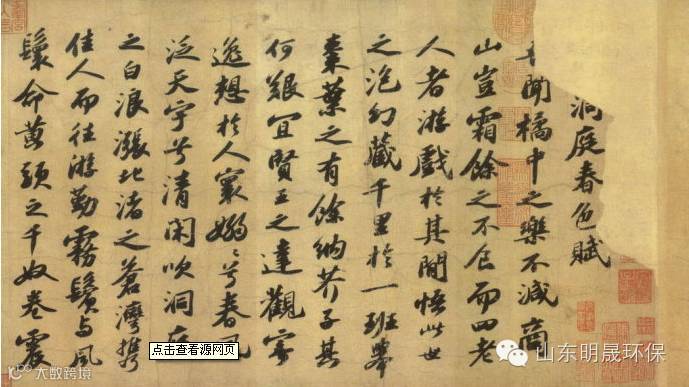 洞庭春色賦
聞橘中之樂不減商
山豈霜餘之不食而四老
人者游戲於其間悟此世
之泡幻藏千里於一班舉
棗葉之有餘納芥子其
何艱宜賢王之達觀寄
逸想於人寰嫋〻兮春風
泛天宇兮清閑吹洞庭
之白浪漲北渚之蒼灣攜
佳人而往游勤霧鬢與風
鬟命黃頭之千奴卷震
点击查看源网页
山东明晟环保
大数跨境